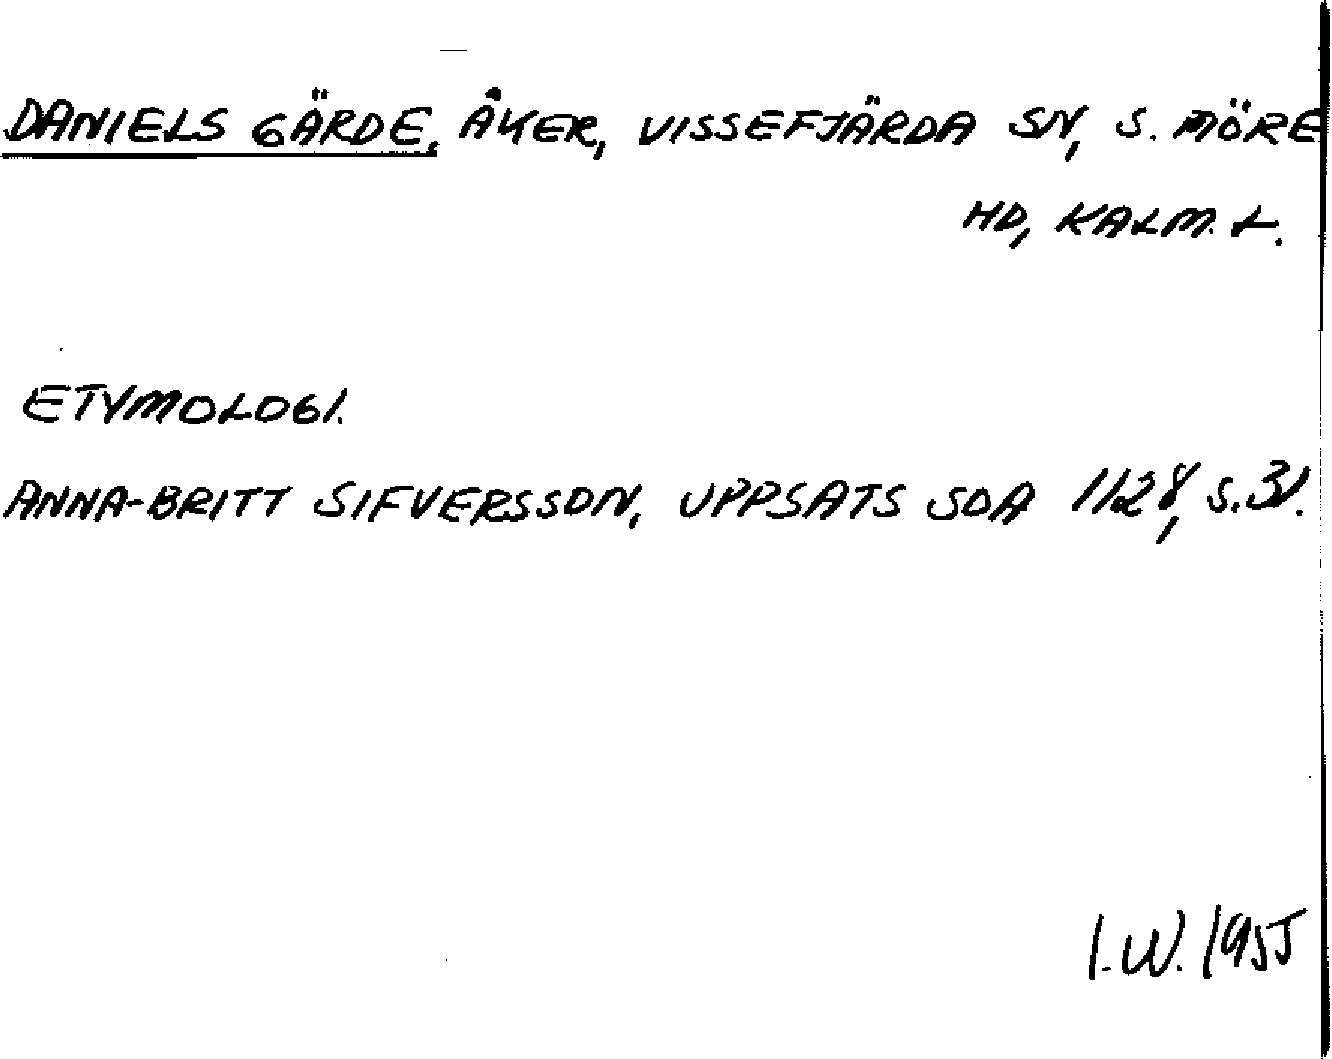 DANIELS GÄRDE, ÅKER, VISSEFJÄRDA SN, S. MÖRE
HD, KALM. L.
ETYMOLOGI.
ANNA-BRITT SIFVERSSON, UPPSATS SOA 1128, S. 31.
I.W. 1955